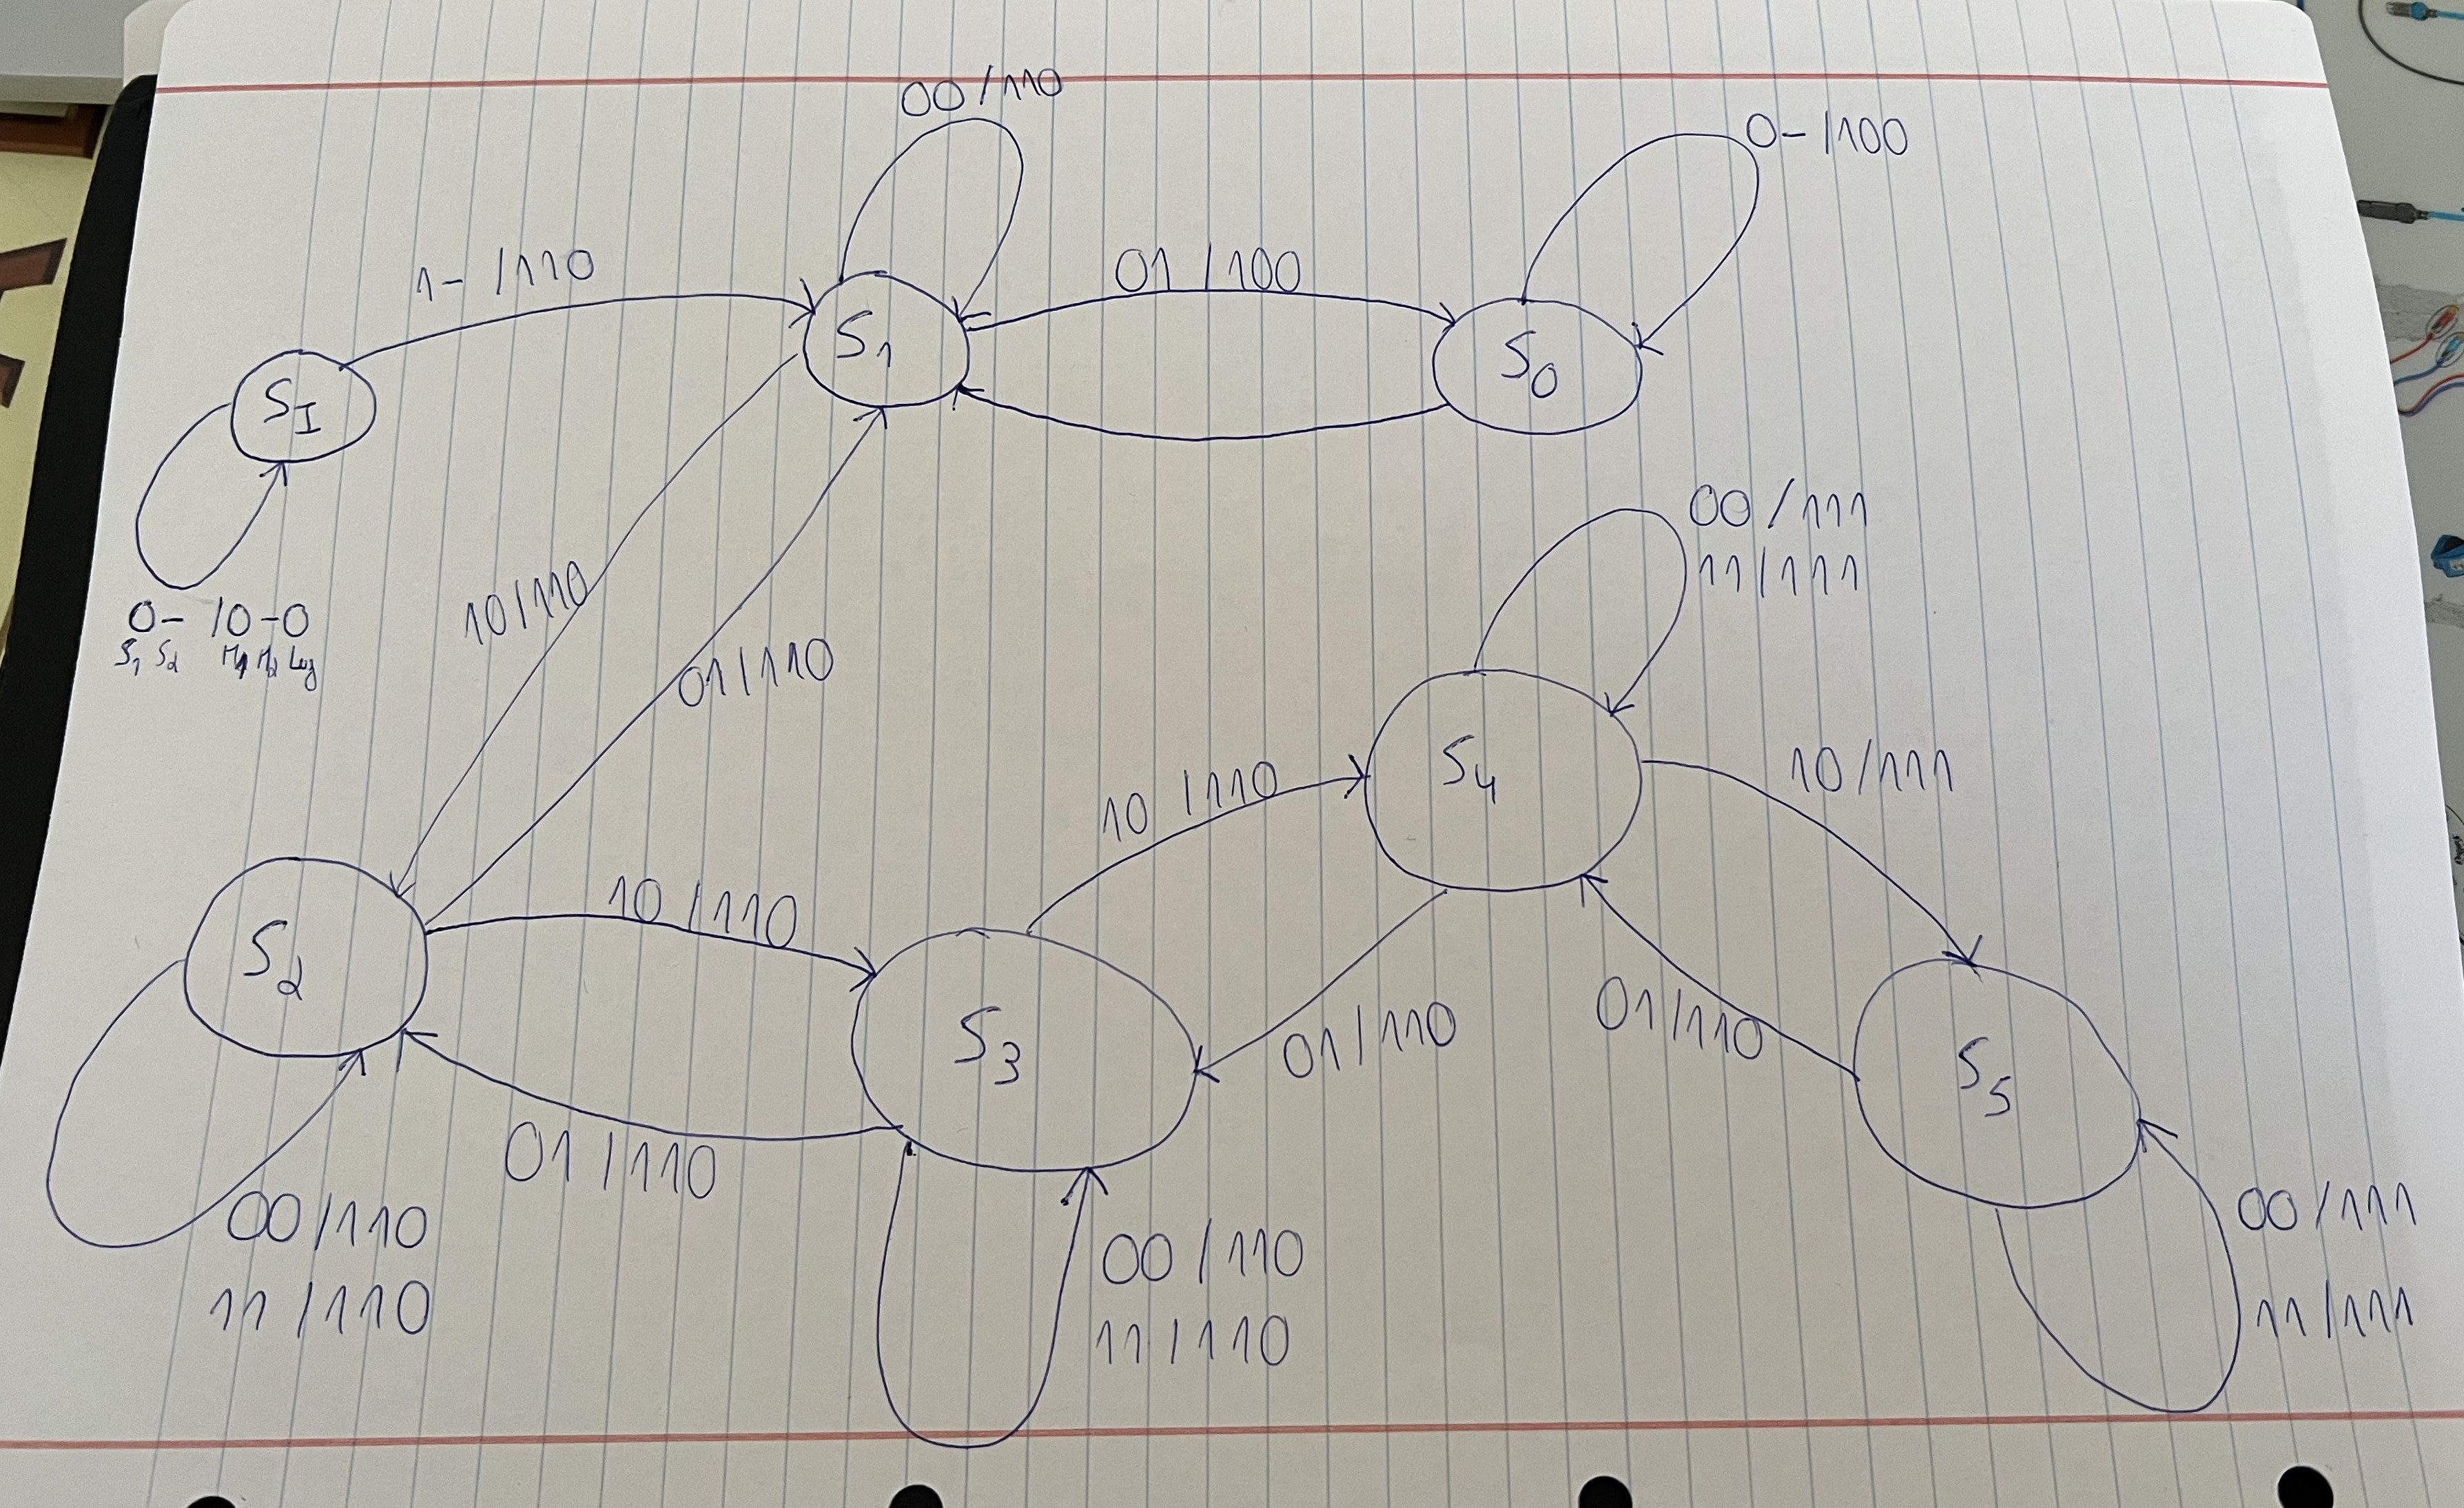 00/110
0-/100
1-/110
01/100
S1
S0
SI
00/111
11/111
10/110
0-/0-0
S1 S2 M1 M2 Log
01/110
S4
10/111
10/110
10/110
S2
S3
01/110
01/110
S5
01/110
00/110
11/110
00/110
11/110
00/111
11/111